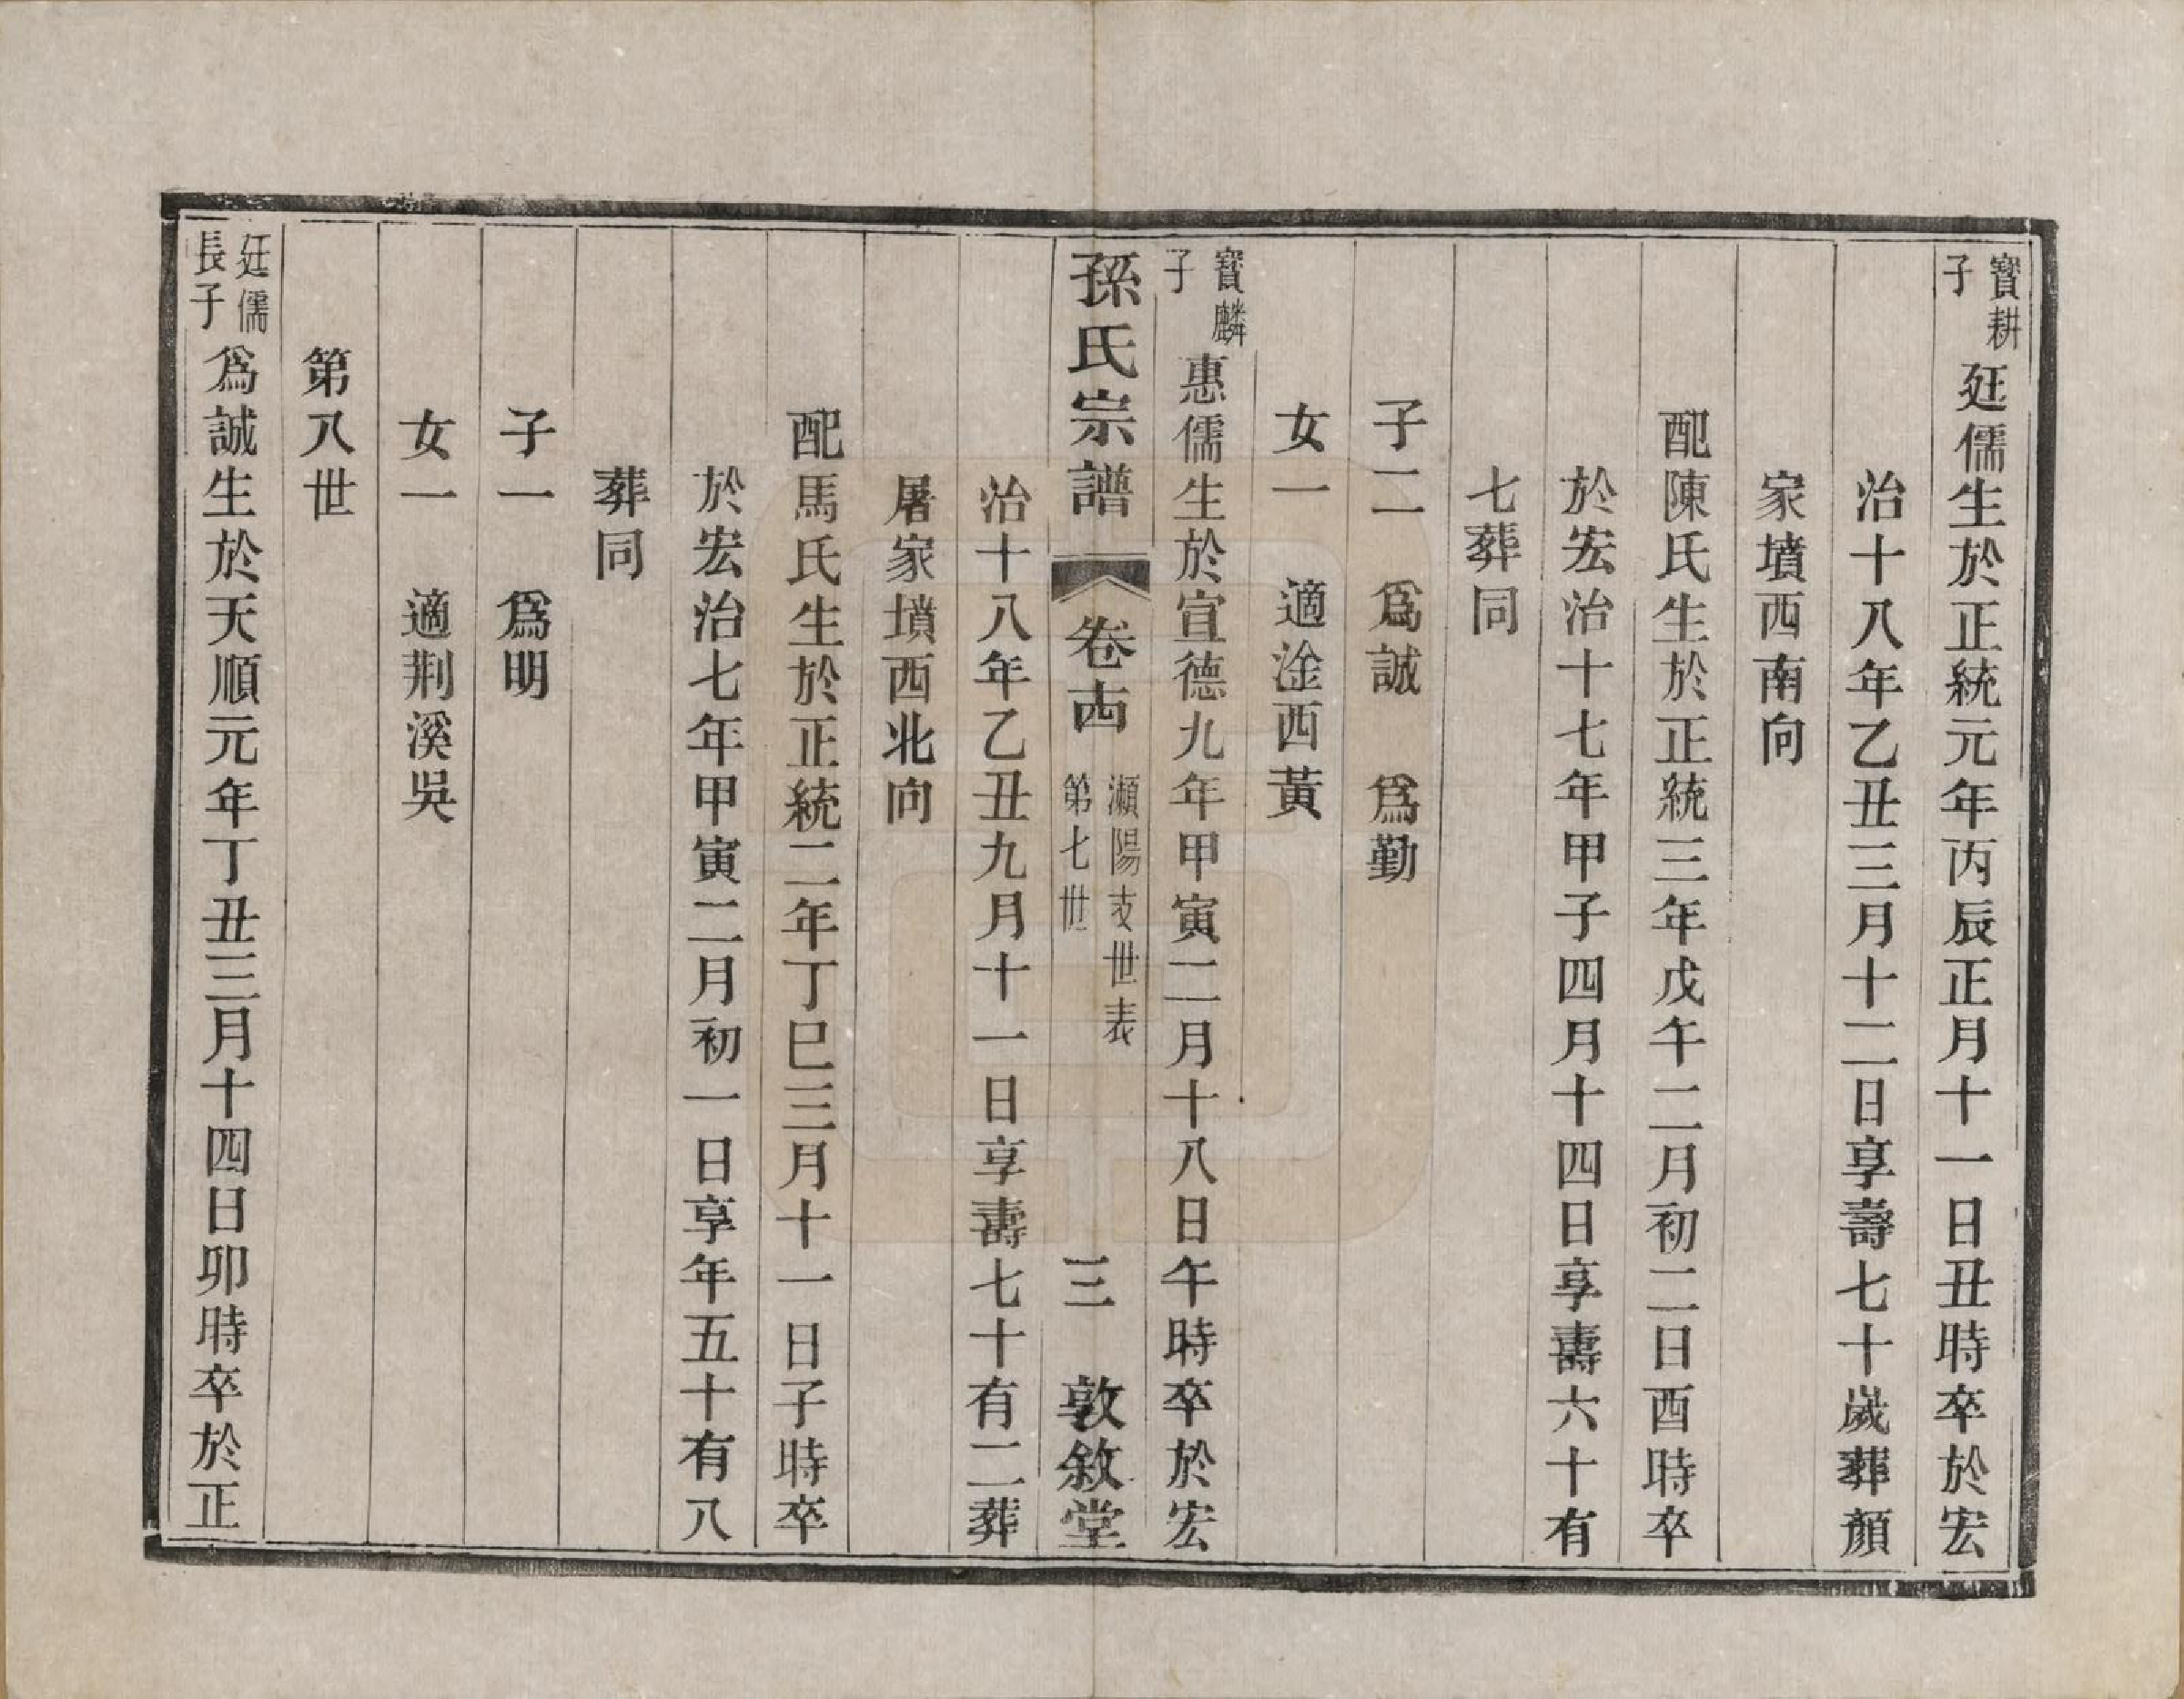 寶耕子 廷儒生於正統元年丙辰正月十一日丑時卒於宏
治十八年乙丑三月十二日享壽七十歲葬顏
家墳西南向
配陳氏生於正統三年戊午二月初二日酉時卒
於宏治十七年甲子四月十四日享壽六十有
七葬同
子二 爲誠 爲勤
女一 適淦西黃
寶麟子 惠儒生於宣德九年甲寅二月十八日午時卒於宏
孫氏宗譜 卷十四 瀨陽支世表 第七世 三 敦敘堂
治十八年乙丑九月十一日享壽七十有二葬
屠家墳西北向
配馬氏生於正統二年丁巳三月十一日子時卒
於宏治七年甲寅二月初一日享年五十有八
葬同
子一 爲明
女一 適荆溪吳
第八世
廷儒長子 爲誠生於天順元年丁丑三月十四日卯時卒於正